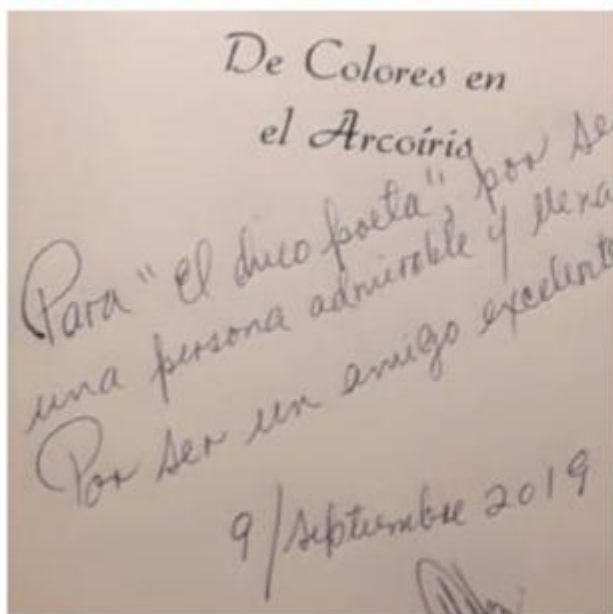 De Colores en
el Arcoíris
Para "El chico poeta", por se
una persona admirable y llena
Por ser un amigo excelente
9/septiembre 2019